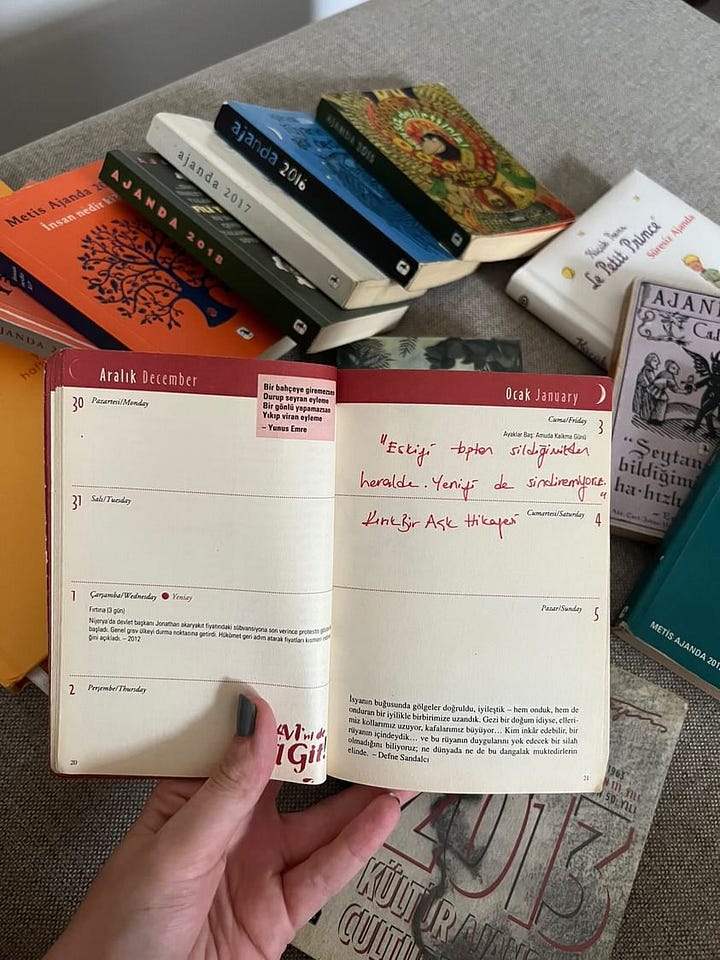 AJANDA 2015
ajanda 2016
ajanda 2017
AJANDA 2018
Metis Ajanda
İnsan nedir
Küçük Prens
Le Petit Prince
Süresiz Ajanda
AJAN
"Şeytan
bildiğim
ha-hızlı
METİS AJANDA 201
Aralık December
Bir bahçeye giremezsen
Durup seyran eyleme
Bir gönlü yapamazsan
Yıkıp viran eyleme
– Yunus Emre
30 Pazartesi/Monday
31 Salı/Tuesday
1 Çarşamba/Wednesday Yeniay
Fırtına (3 gün)
Nijerya'da devlet başkanı Jonathan akaryakıt fiyatındaki sübvansiyona son verince protestolar
başladı. Genel grev ülkeyi durma noktasına getirdi. Hükümet geri adım atarak fiyatları kısmen
ğini açıkladı. – 2012
2 Perşembe/Thursday
Git!
20
Ocak January
Cuma/Friday 3
Ayaklar Baş: Amuda Kalkma Günü
"Eskiyi toptan sildiğimizden
heralde. Yeniyi de sindiremiyoruz."
Kırık Bir Aşk Hikayesi
Cumartesi/Saturday 4
Pazar/Sunday 5
İsyanın buğusunda gölgeler doğruldu, iyileştik – hem onduk, hem de
onduran bir iyilikle birbirimize uzandık. Gezi bir doğum idiyse, elleri-
miz kollarımız uzuyor, kafalarımız büyüyor... Kim inkâr edebilir, bir
rüyanın içindeydik... ve bu rüyanın duygularını yok edecek bir silah
olmadığını biliyoruz; ne dünyada ne de bu dangalak muktedirlerin
elinde. – Defne Sandalcı
21
2013
KÜLTÜR AJAN
CULTU